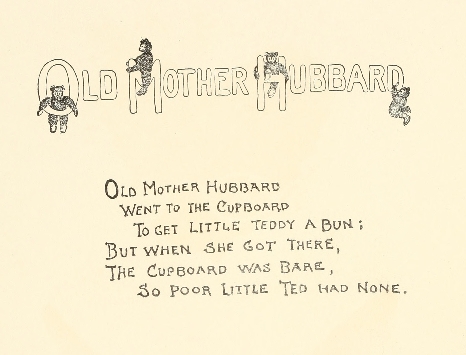 OLD MOTHER HUBBARD
OLD MOTHER HUBBARD
WENT TO THE CUPBOARD
TO GET LITTLE TEDDY A BUN;
BUT WHEN SHE GOT THERE,
THE CUPBOARD WAS BARE,
SO POOR LITTLE TED HAD NONE.